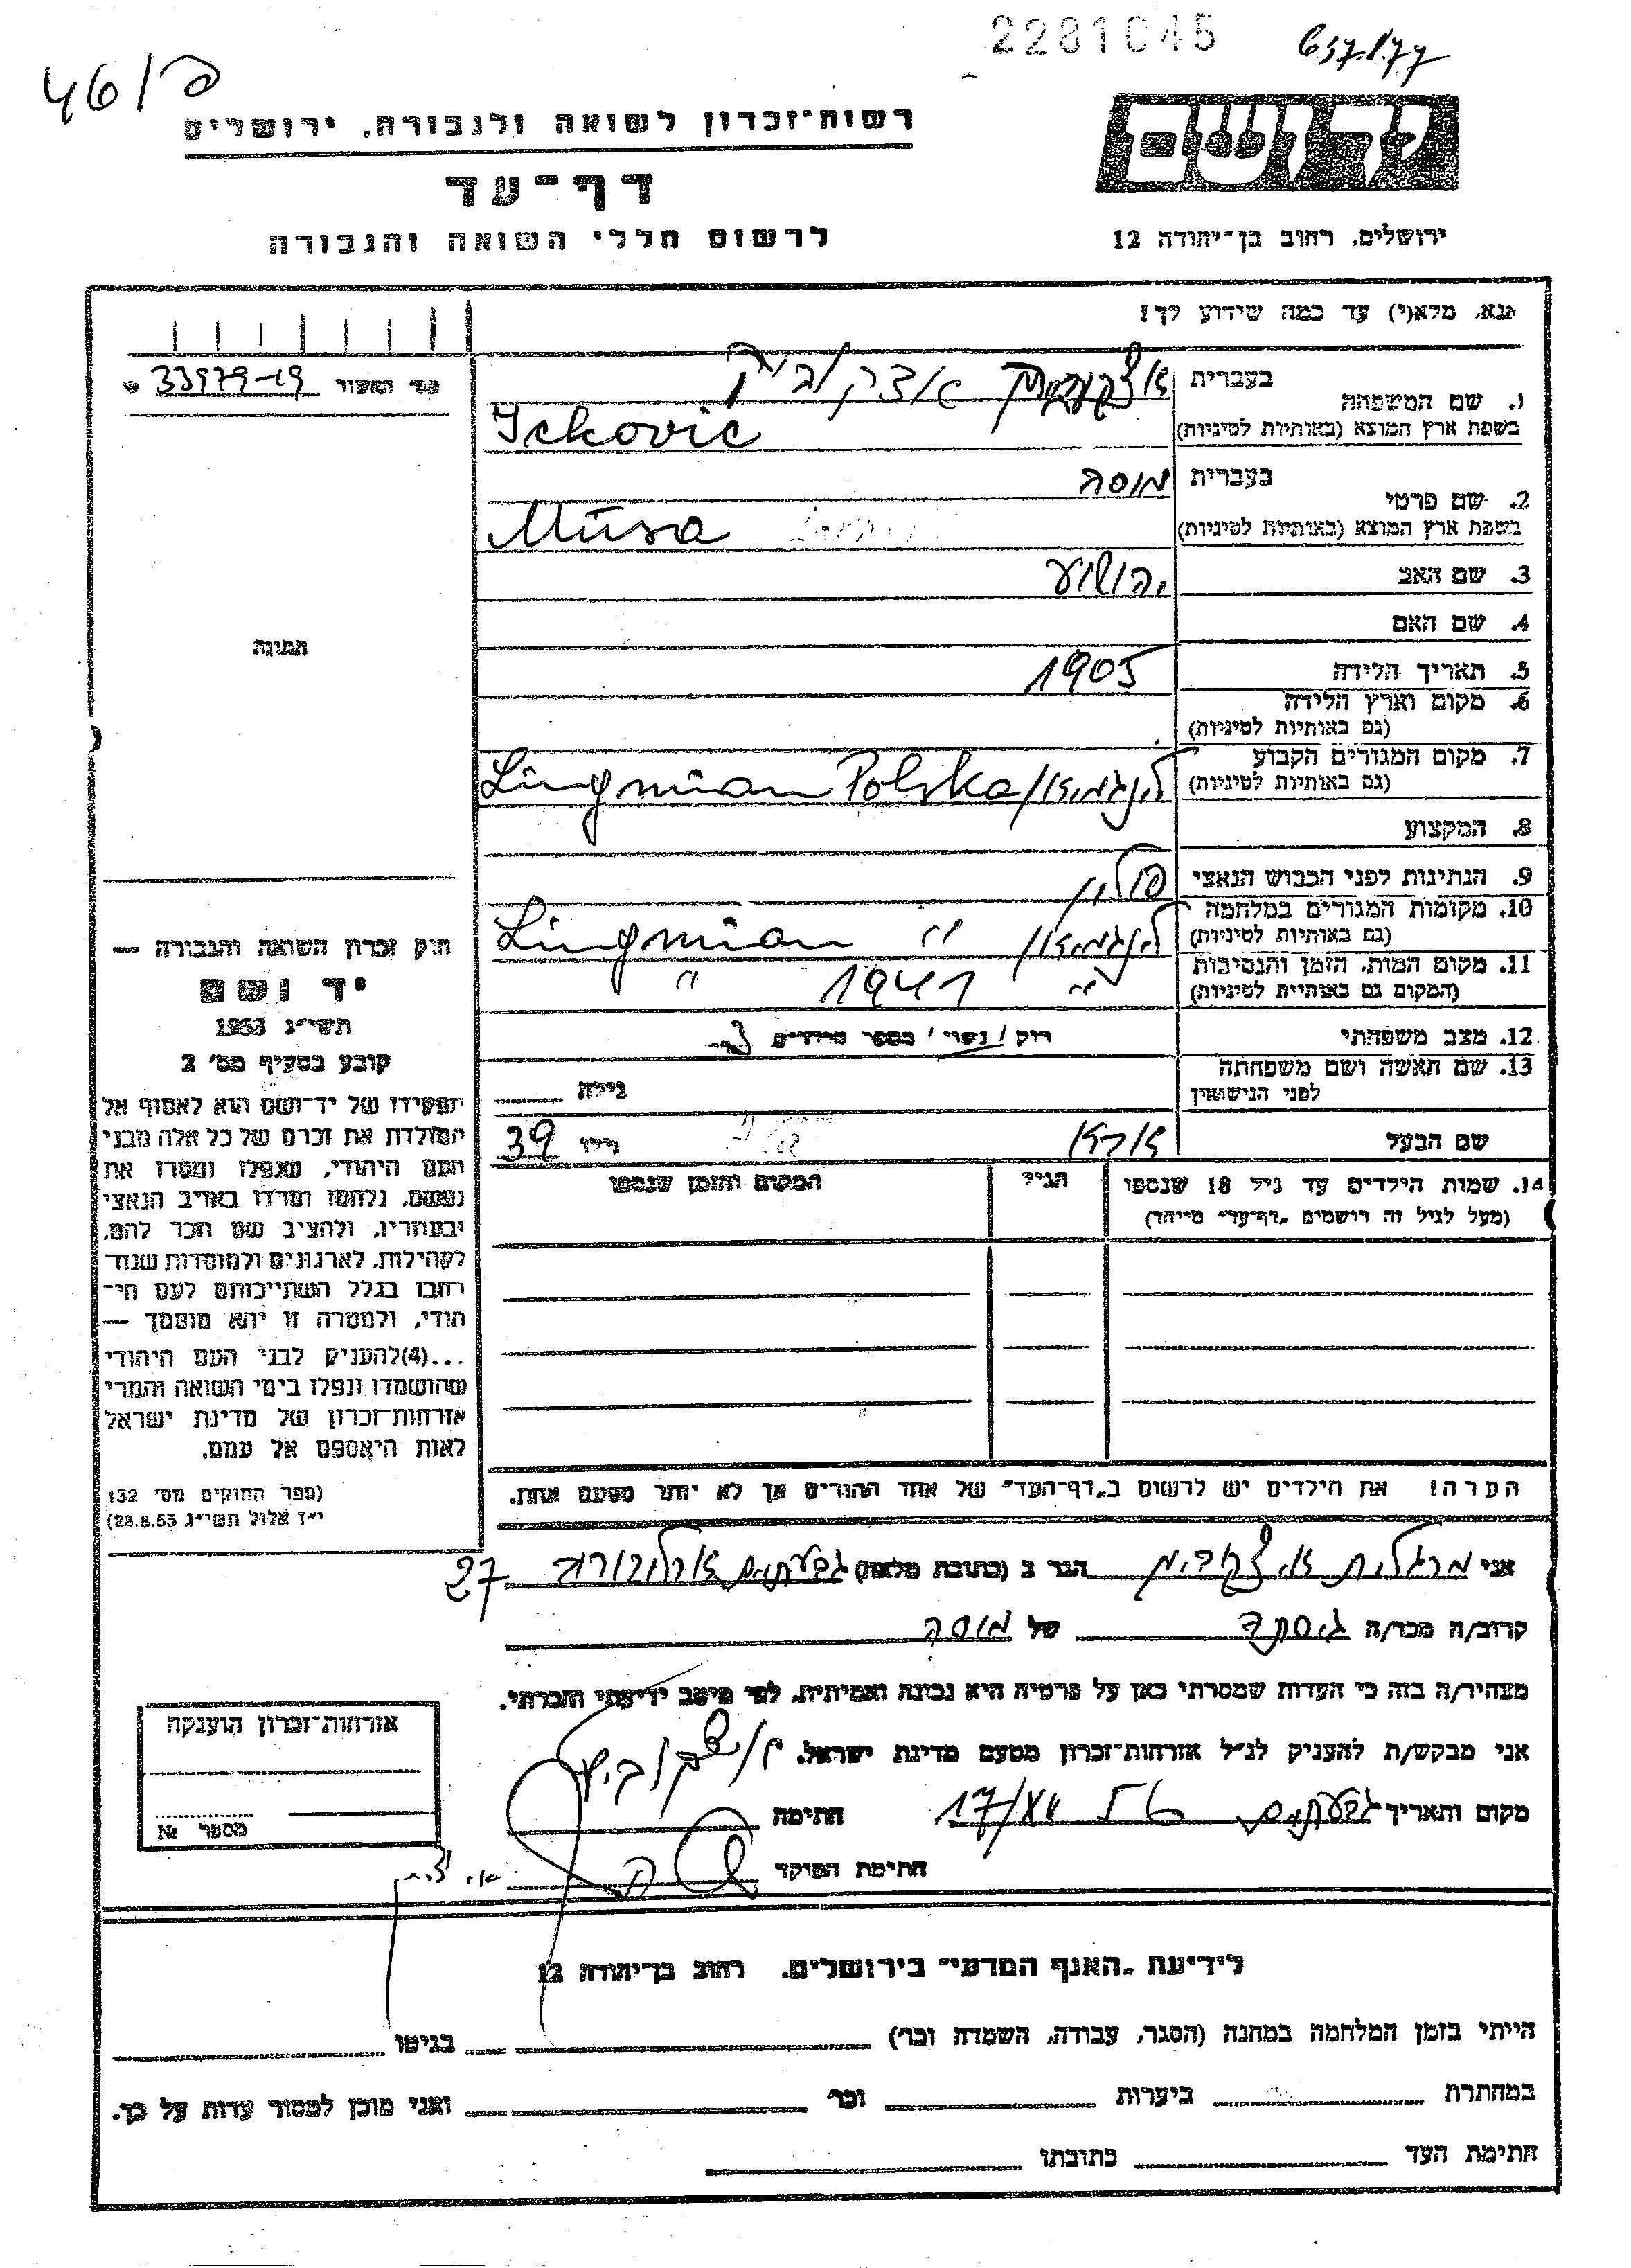 2281045
46/פ
רשות-זכרון לשואה ולגבורה, ירושלים
דף-עד
לרשום חללי השואה והגבורה
ידושם
ירושלים, רחוב בן-יהודה 12
אנא, מלא(י) עד כמה שידוע לך!
מס' האשור 33979-19
1. שם המשפחה
בעברית איצקוביץ
בשפת ארץ המוצא (באותיות לטיניות) Ickovic
2. שם פרטי
בעברית מוסה
בשפת ארץ המוצא (באותיות לטיניות) Musa
3. שם האב יהושע
4. שם האם
5. תאריך הלידה 1905
6. מקום וארץ הלידה
(גם באותיות לטיניות)
7. מקום המגורים הקבוע
(גם באותיות לטיניות) Lingmian Polska /
8. המקצוע
9. הנתינות לפני הכבוש הנאצי פולין
10. מקומות המגורים במלחמה
(גם באותיות לטיניות) Lingmian "
11. מקום המות, הזמן והנסיבות
(המקום גם באותיות לטיניות) " 1941 "
12. מצב משפחתי רוק / נשוי / מספר הילדים
13. שם האשה ושם משפחתה
לפני הנישואין גילה
שם הבעל גילו 39
14. שמות הילדים עד גיל 18 שנספו
(מעל לגיל זה רושמים „דף-עד" מייוחד)
הגיל
המקום והזמן שנספו
התמונה
חוק זכרון השואה והגבורה —
יד ושם
תשי"ג 1953
קובע בסעיף מס' 2
תפקידו של יד-ושם הוא לאסוף אל
המולדת את זכרם של כל אלה מבני
העם היהודי, שנפלו ומסרו את
נפשם, נלחמו ומרדו באויב הנאצי
ובעוזריו, ולהציב שם וזכר להם,
לקהילות, לארגונים ולמוסדות שנח-
רבו בגלל השתייכותם לעם הי-
הודי, ולמטרה זו יהא מוסמך —
...(4) להעניק לבני העם היהודי
שהושמדו ונפלו בימי השואה והמרי
אזרחות-זכרון של מדינת ישראל
לאות היאספם אל עמם.
(ספר החוקים מס' 132
י"ז אלול תשי"ג 28.8.53)
הערה! את הילדים יש לרשום ב„דף-העד" של אחד ההורים אך לא יותר מפעם אחת.
אני מרגלית איצקוביץ הגר ב (כתובת מלאה) גבעתיים ארלוזורוב 27
קרוב/ה מכר/ה גיסה של מוסה
מצהיר/ה בזה כי העדות שמסרתי כאן על פרטיה היא נכונה ואמיתית, לפי מיטב ידיעתי והכרתי.
אני מבקש/ת להעניק לנ"ל אזרחות-זכרון מטעם מדינת ישראל.
מקום ותאריך גבעתיים חתימה
חתימת הפוקד
אזרחות-זכרון הוענקה
מספר №
לידיעת „האגף המדעי" בירושלים, רחוב בן-יהודה 12
הייתי בזמן המלחמה במחנה (הסגר, עבודה, השמדה וכו') בגיטו
במחתרת ביערות וכו' ואני מוכן למסור עדות על כך.
חתימת העד כתובתו